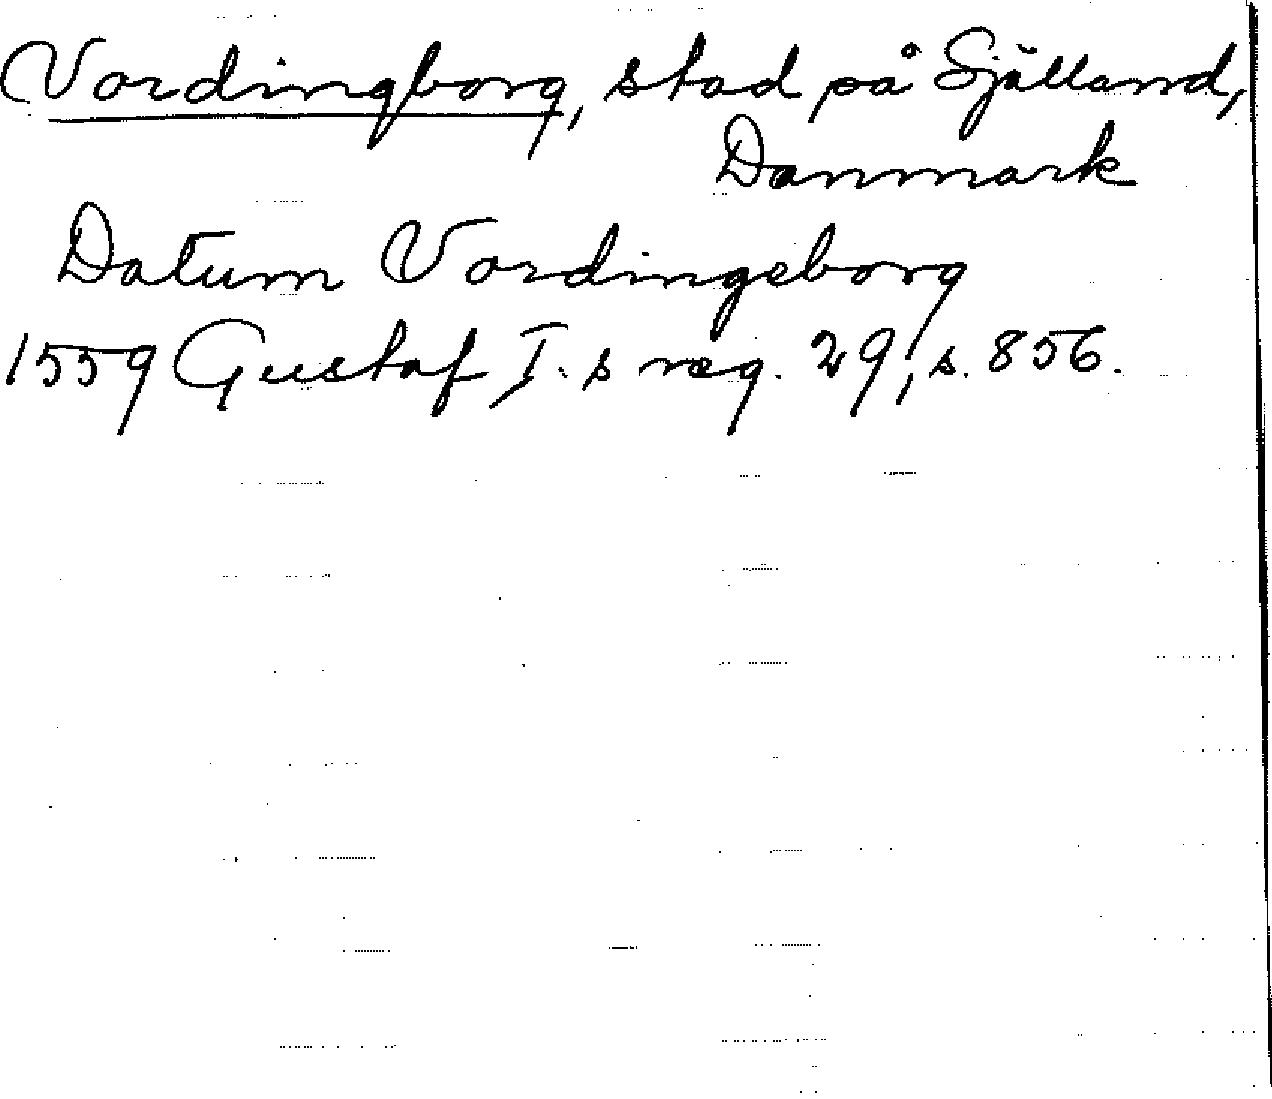 Vordingborg, stad på Själland,
Danmark
Datum Vordingeborg
1559 Gustaf I.s reg. 29, s. 856.